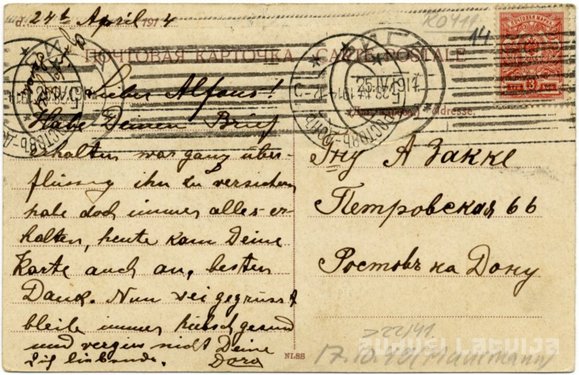 d. 24th April 1914
R0419
14
ПОЧТОВАЯ КАРТОЧКА. CARTE POSTALE.
Lieber Alfons!
Habe Deinen Brief
erhalten war ganz über-
flüssig ihn zu versichern
habe doch immer alles er-
halten, heute kam Deine
Karte auch an, besten
Dank. Nun sei gegrüsst
bleibe immer hübsch gesund
und vergiss nicht Deine
Dich liebende. Dora
Adresse.
Яну А Закке
Петровская 66
Ростовъ на Дону
NLSS
>22/41
AUKUSI LATVIJA
17.10.43